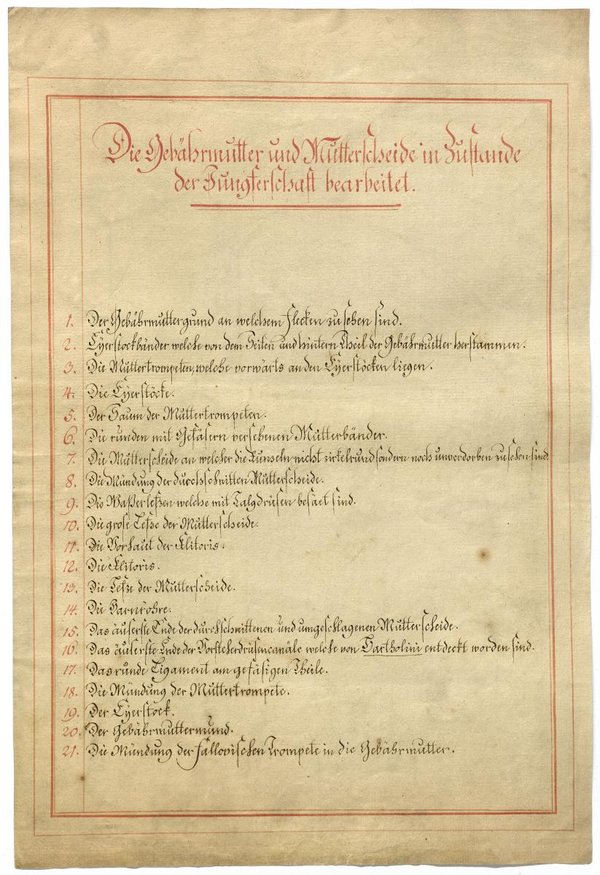 Die Gebährmutter und Mutterscheide in Zustande
der Jungferschaft bearbeitet.
1. Der Gebährmuttergrund an welchem Flecken zu sehen sind.
2. Eyerstockbänder welche von dem Seiten und hintern Theil der Gebährmutter herstammen.
3. Die Muttertrompeten, welche vorwärts an den Eyerstöcken liegen.
4. Die Eyerstöcke.
5. Der Saum der Muttertrompeten.
6. Die runden mit Gefäsern versehenen Mutterbänder.
7. Die Mutterscheide an welcher die Runseln nicht zirkelrund sondern noch unverdorben zu sehen sind.
8. Die Mündung der durchschnitten Mutterscheide.
9. Die Waßerlefzen welche mit Talgdrüsen besäet sind.
10. Die grose Lefze der Mutterscheide.
11. Die Vorhaut der Klitoris.
12. Die Klitoris.
13. Die Lefze der Mutterscheide.
14. Die Harnröhre.
15. Das äuserste Ende der durchschnittenen und umgeschlagenen Mutterscheide.
16. Das äuserste Ende der Vorsteherdrüsencanäle welche von Bartholini entdeckt worden sind.
17. Das runde Ligament am gefäsigen Theile.
18. Die Mündung der Muttertrompete.
19. Der Eyerstock.
20. Der Gebährmuttermund.
21. Die Mündung der fallopischen Trompete in die Gebährmutter.